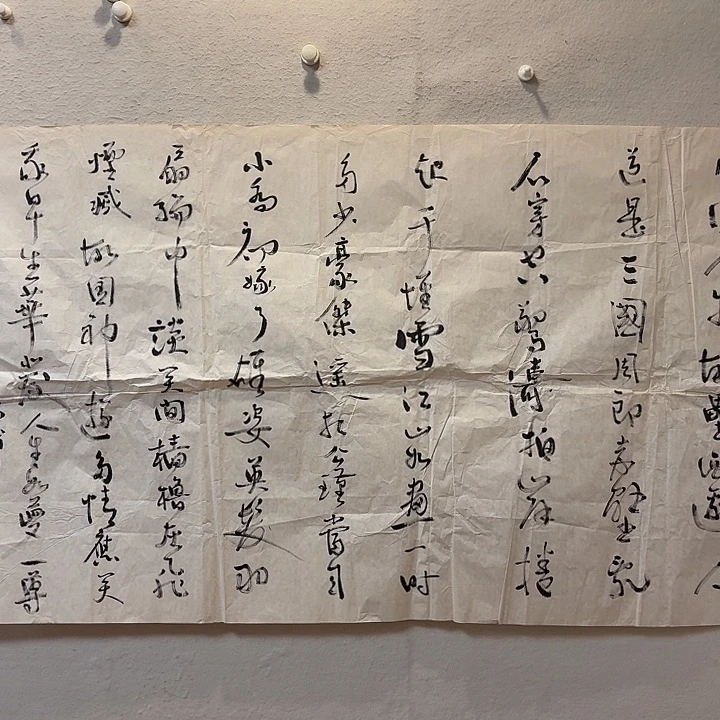 故壘西邊人
道是三國周郎赤壁亂
石穿空驚濤拍岸捲
起千堆雪江山如畫一時
多少豪傑遙想公瑾當年
小喬初嫁了雄姿英發羽
扇綸巾談笑間檣櫓灰飛
煙滅故國神遊多情應笑
我早生華髮人生如夢一尊